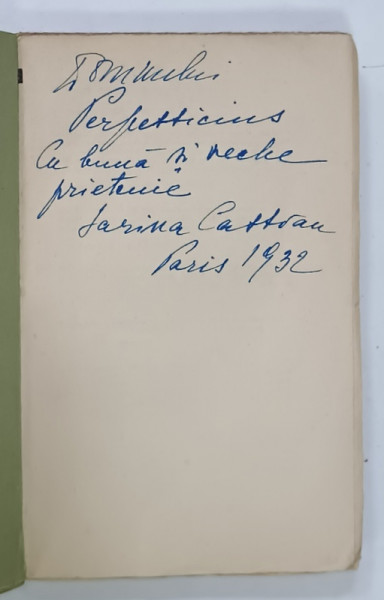 Domnului
Perpessicius
Cu bună și veche
prietenie
Sarina Cassvan
Paris 1932